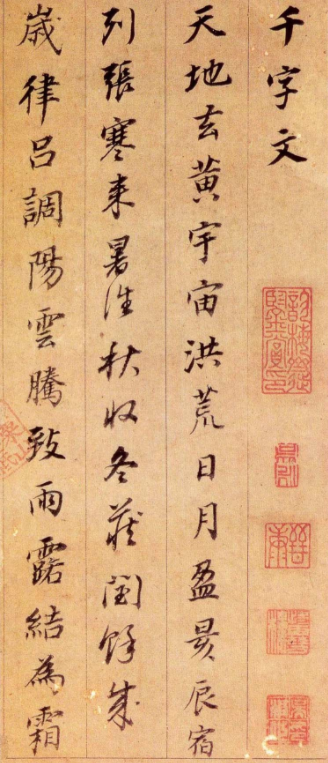 千字文
天地玄黃宇宙洪荒日月盈昃辰宿
列張寒来暑往秋收冬藏閏餘成
歲律呂調陽雲騰致雨露結為霜